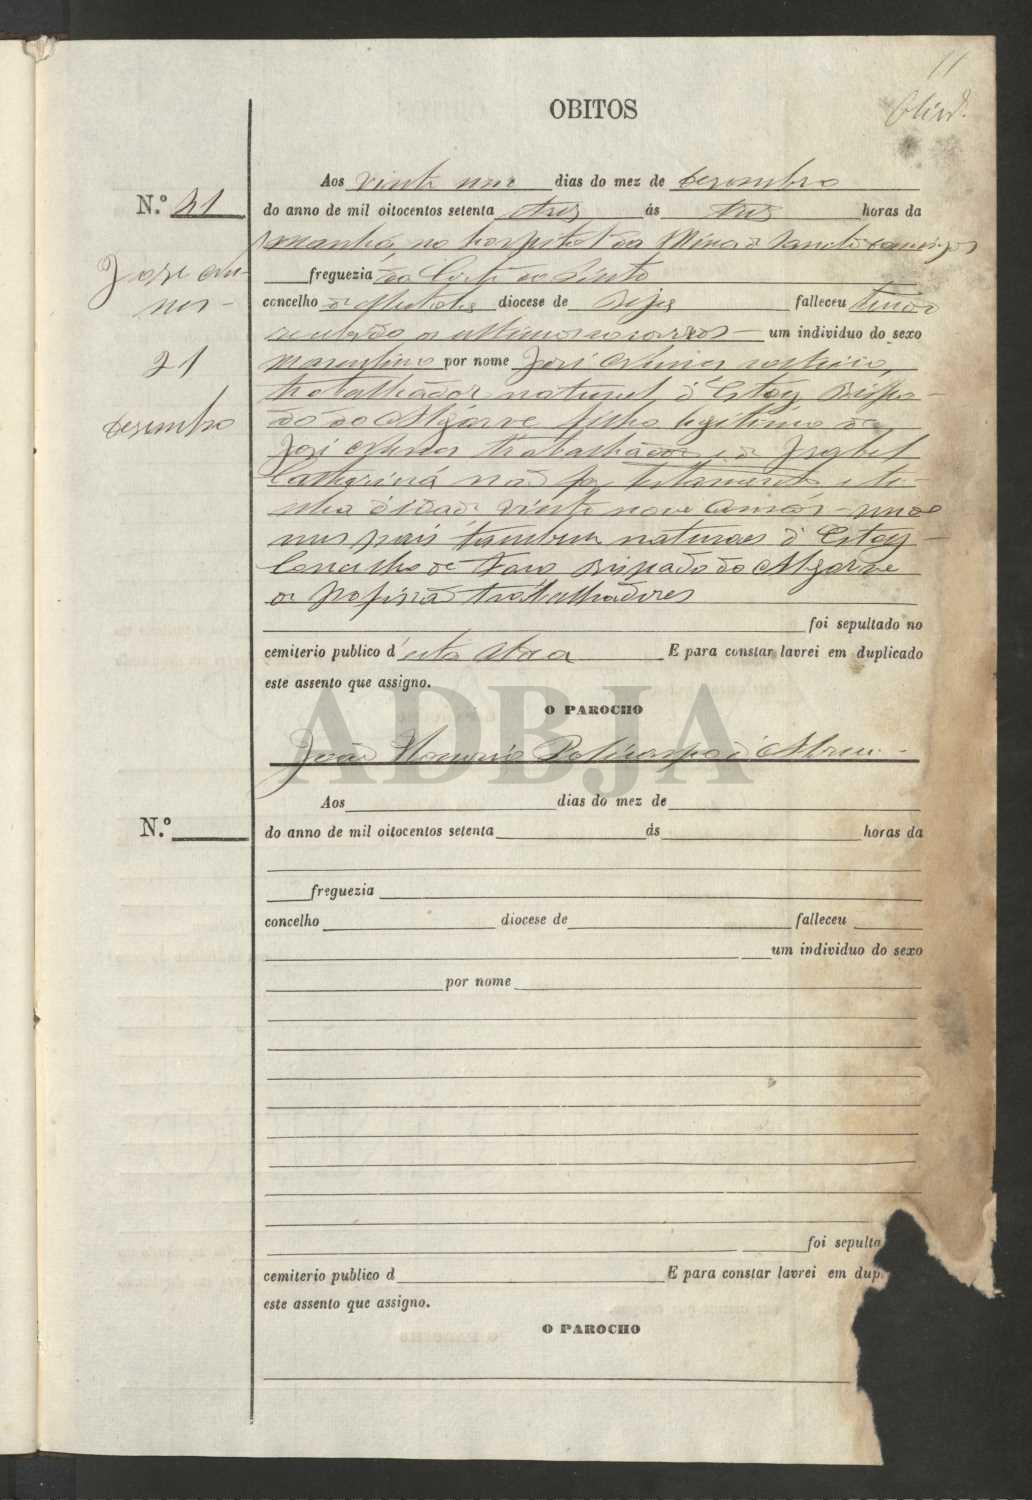 11
OBITOS
Aos vinte um dias do mez de dezembro
N.º 31
do anno de mil oitocentos setenta tres ás tres horas da
manhã, no hospital da Mina de Sam Domingos
José Nu-
freguezia da Corte do Pinto
nes
concelho de Mertola diocese de Beja falleceu tendo
recebido os ultimos socorros um individuo do sexo
21
masculino por nome José Nunes solteiro,
trabalhador natural d'Estoy Bispa-
dezembro
do do Algarve filho legitimo de
José Nunes trabalhador e de Izabel
Catherina não fez testamento e ti-
nha d'idade vinte nove annos
pais tambem naturaes d'Estoy
Concelho de Faro Bispado do Algarve
de Profissão trabalhadores
foi sepultado no
cemiterio publico d'esta Aldea E para constar lavrei em duplicado
este assento que assigno.
O PAROCHO
ADBJA
João Policarpo d'Abreu
Aos dias do mez de
N.º
do anno de mil oitocentos setenta ás horas da
freguezia
concelho diocese de falleceu
um individuo do sexo
por nome
foi sepulta
cemiterio publico d E para constar lavrei em dup
este assento que assigno.
O PAROCHO